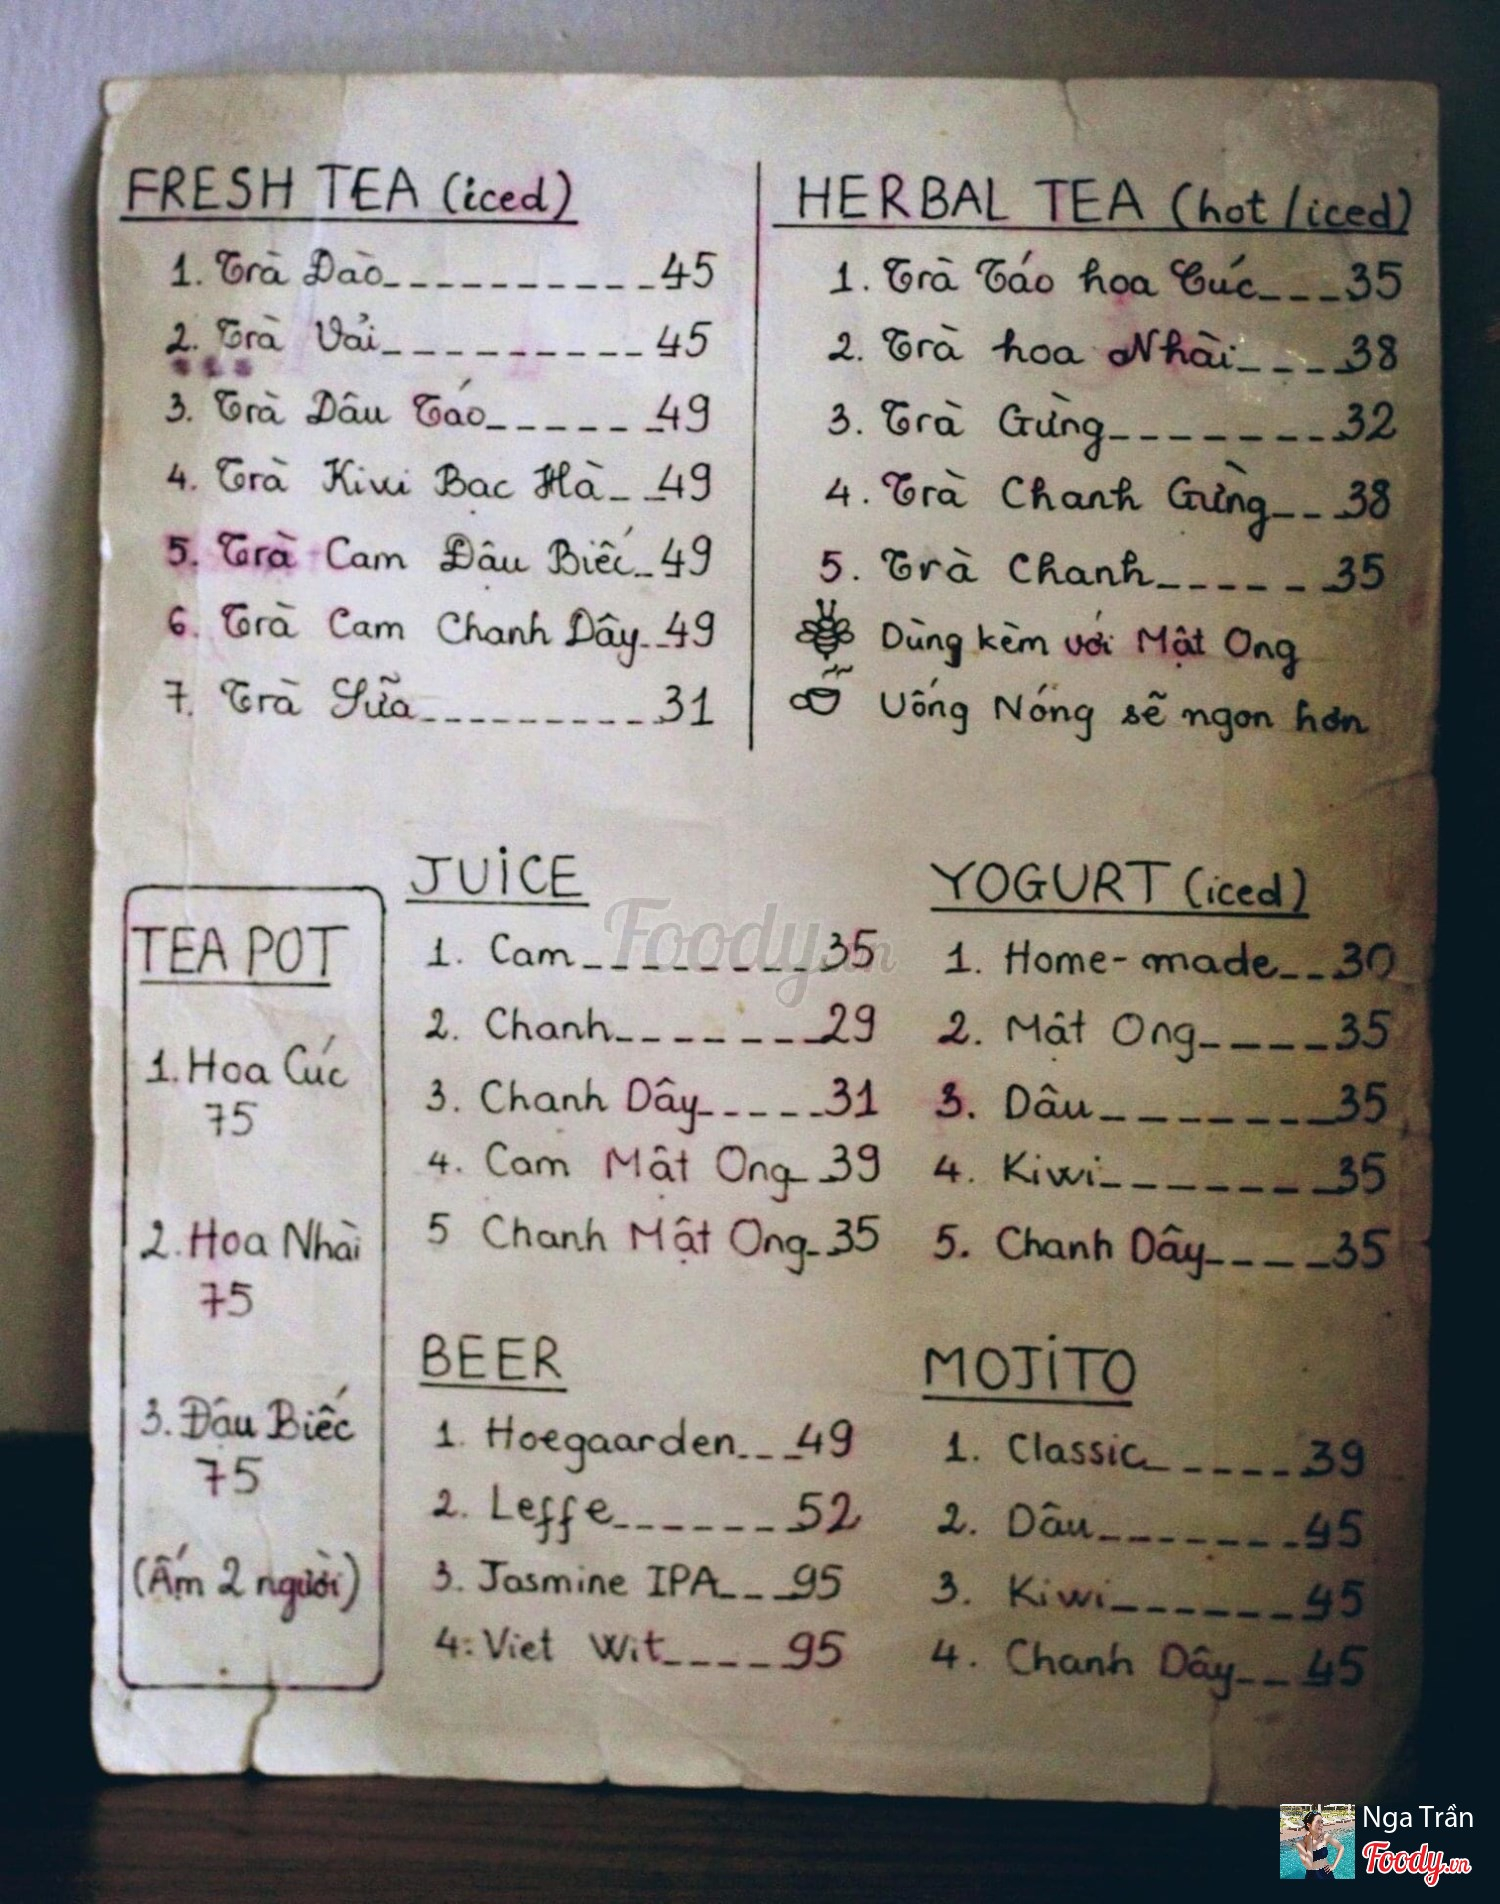 FRESH TEA (iced)
1. Trà Đào__________45
2. Trà Vải__________45
3. Trà Dâu Táo______49
4. Trà Kiwi Bạc Hà__49
5. Trà Cam Đậu Biếc_49
6. Trà Cam Chanh Dây__49
7. Trà Sữa__________31
HERBAL TEA (hot/iced)
1. Trà Táo hoa Cúc___35
2. Trà hoa Nhài____38
3. Trà Gừng________32
4. Trà Chanh Gừng___38
5. Trà Chanh______35
Dùng kèm với Mật Ong
Uống Nóng sẽ ngon hơn
TEA POT
1. Hoa Cúc
75
2. Hoa Nhài
75
3. Đậu Biếc
75
(Ấm 2 người)
JUiCE
1. Cam_________35
2. Chanh________29
3. Chanh Dây_____31
4. Cam Mật Ong_39
5 Chanh Mật Ong_35
YOGURT (iced)
1. Home-made__30
2. Mật Ong_____35
3. Dâu_________35
4. Kiwi_________35
5. Chanh Dây_____35
BEER
1. Hoegaarden___49
2. Leffe_______52
3. Jasmine IPA___95
4. Viet Wit_____95
MOJiTO
1. Classic______39
2. Dâu________45
3. Kiwi_______45
4. Chanh Dây___45
Foody.vn
Nga Trần
Foody.vn